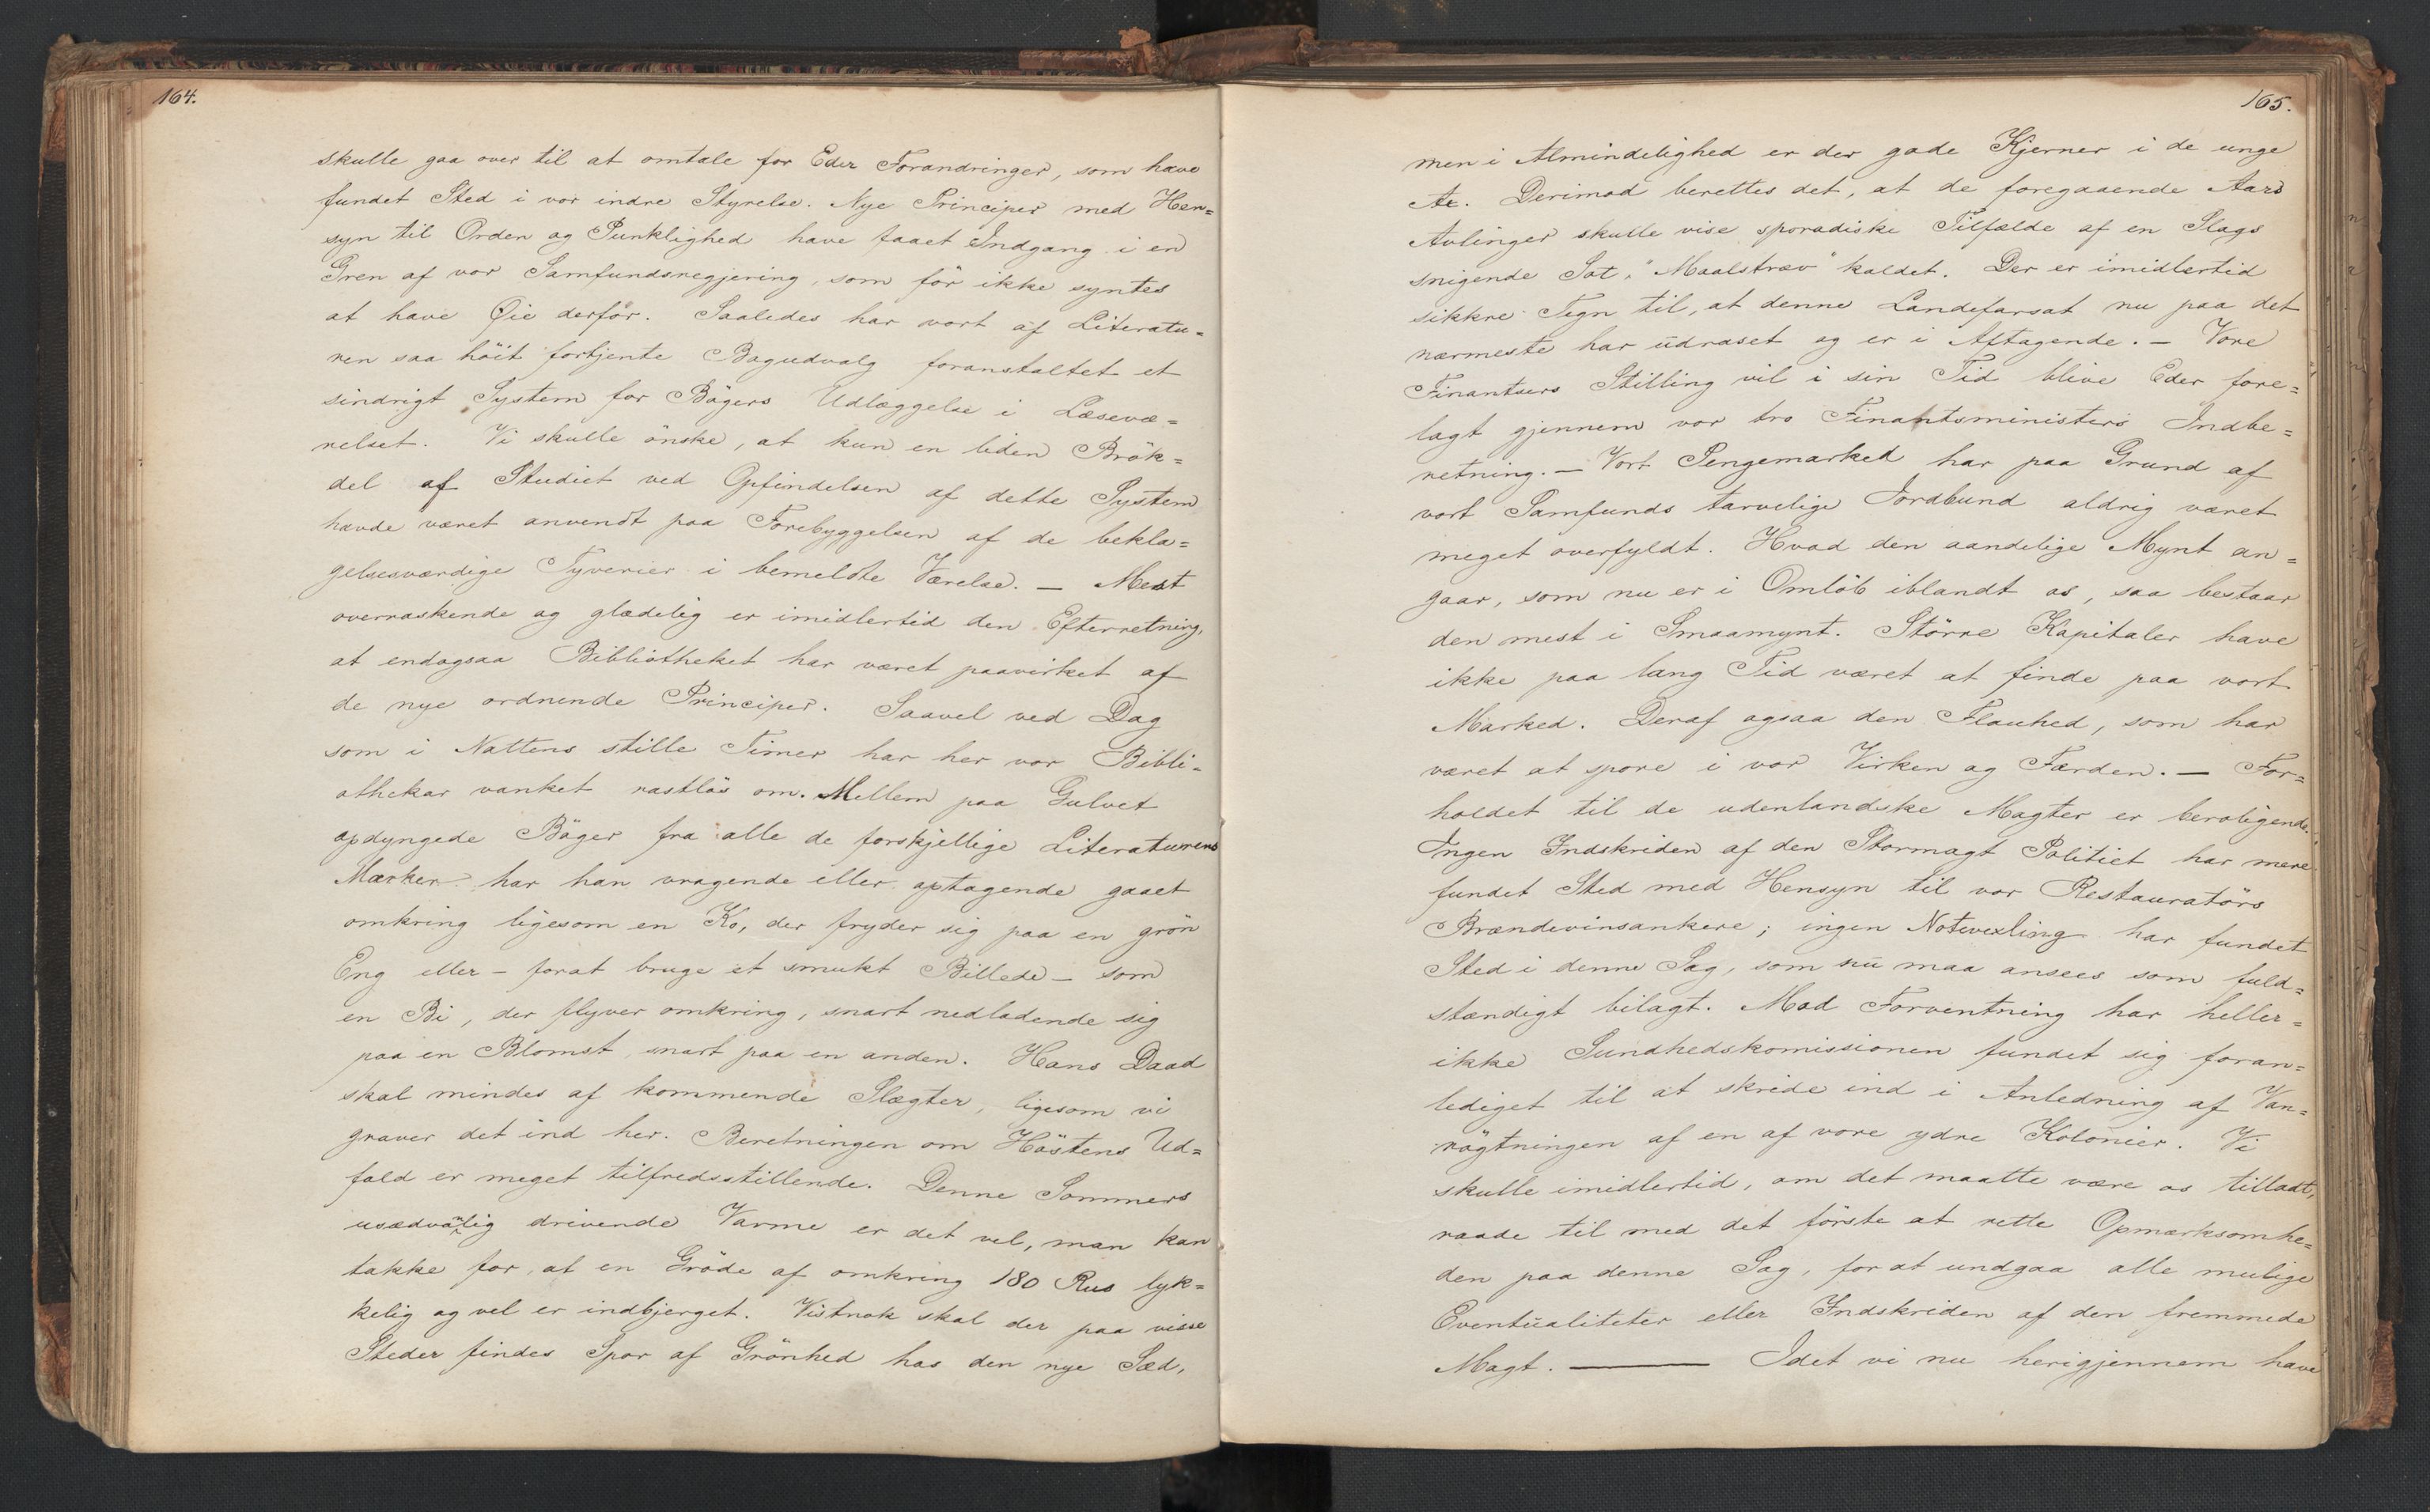 164.
skulle gaa over til at omtale for Eder Forandringer, som have
fundet Sted i vor indre Styrelse. Nye Principer med Hen=
syn til Orden og Punklighed have faaet Indgang i en
Gren af vor Samfundsregjering, som før ikke syntes
at have Øie derfor. Saaledes har vort af Literatu=
ren saa høit fortjente Bogudvalg foranstaltet et
sindrigt System for Bøgers Udlæggelse i Læsevæ=
relset. Vi skulle ønske, at kun en liden Brøk=
del af Studiet ved Opfindelsen af dette System
havde været anvendt paa Forebyggelsen af de bekla=
gelsesværdige Tyverier i bemeldte Værelse. — Mest
overraskende og glædelig er imidlertid den Efterretning,
at endogsaa Bibliotheket har været paavirket af
de nye ordnende Principer. Saavel ved Dag
som i Nattens stille Timer har her vor Bibli=
othekar vanket rastløs om. Mellem paa Gulvet
opdyngede Bøger fra alle de forskjellige Literaturens
Marker har han vragende eller optagende gaaet
omkring ligesom en Ko, der fryder sig paa en grøn
Eng eller — forat bruge et smukt Billede — som
en Bi, der flyver omkring, snart nedladende sig
paa en Blomst, snart paa en anden. Hans Daad
skal mindes af kommende Slægter, ligesom vi
graver det ind her. Beretningen om Høstens Ud=
fald er meget tilfredsstillende. Denne Sommers
usædvanlig drivende Varme er det vel, man kan
takke for, at en Grøde af omkring 180 Rus lyk=
kelig og vel er indbjerget. Vistnok skal der paa visse
Steder findes Spor af Grønhed hos den nye Sæd,
165.
men i Almindelighed er der gode Kjerner i de unge
Ax. Derimod berettes det, at de foregaaende Aars
Avlinger skulle vise sporadiske Tilfælde af en Slags
snigende Sot, "Maalstræv" kaldet. Der er imidlertid
sikkre Tegn til, at denne Landefarsot nu paa det
nærmeste har udraset og er i Aftagende. — Vore
Finantsers Stilling vil i sin Tid blive Eder fore=
lagt gjennem vor tro Finantsministers Indbe=
retning. — Vort Pengemarked har paa Grund af
vort Samfunds tarvelige Jordbund aldrig været
meget overfyldt. Hvad den aandelige Mynt an=
gaar, som nu er i Omløb iblandt os, saa bestaar
den mest i Smaamynt. Større Kapitaler have
ikke paa lang Tid været at finde paa vort
Marked. Deraf ogsaa den Flauhed, som har
været at spore i vor Virken og Færden. — For=
holdet til de udenlandske Magter er beroligende.
Ingen Indskriden af den Stormagt Politiet har mere
fundet Sted med Hensyn til vor Restauratørs
Brændevinsankere; ingen Notevexling har fundet
Sted i denne Sag, som nu maa ansees som fuld=
stændigt bilagt. Mod Forventning har heller=
ikke Sundhedskomissionen fundet sig foran=
lediget til at skride ind i Anledning af Van=
røgtningen af en af vore ydre Kolonier. Vi
skulle imidlertid, om det maatte være os tilladt,
raade til med det første at rette Opmærksomhe=
den paa denne Sag, for at undgaa alle mulige
Eventualiteter eller Indskriden af den fremmede
Magt. ——— Idet vi nu herigjennem have